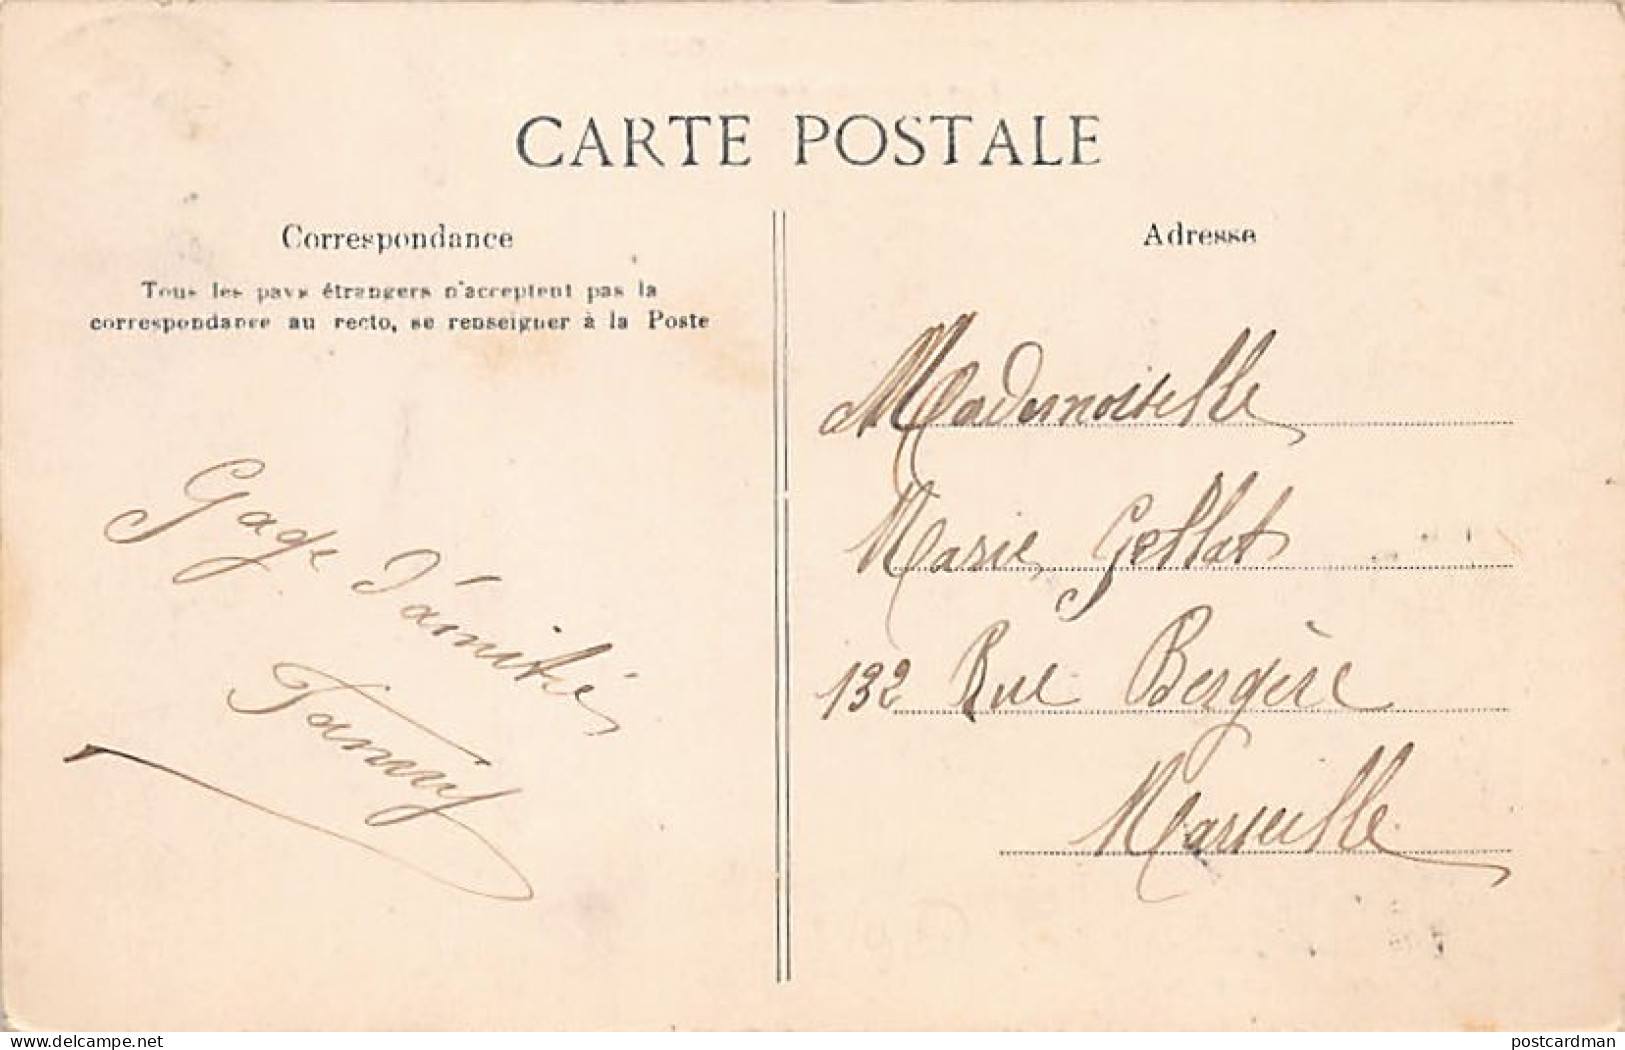 CARTE POSTALE
Correspondance
Tous les pays étrangers n'acceptent pas la
correspondance au recto, se renseigner à la Poste
Gage d'amitié
Adresse
Mademoiselle
Marie
132 Rue Bergère
Marseille
delcampe.net
postcardman